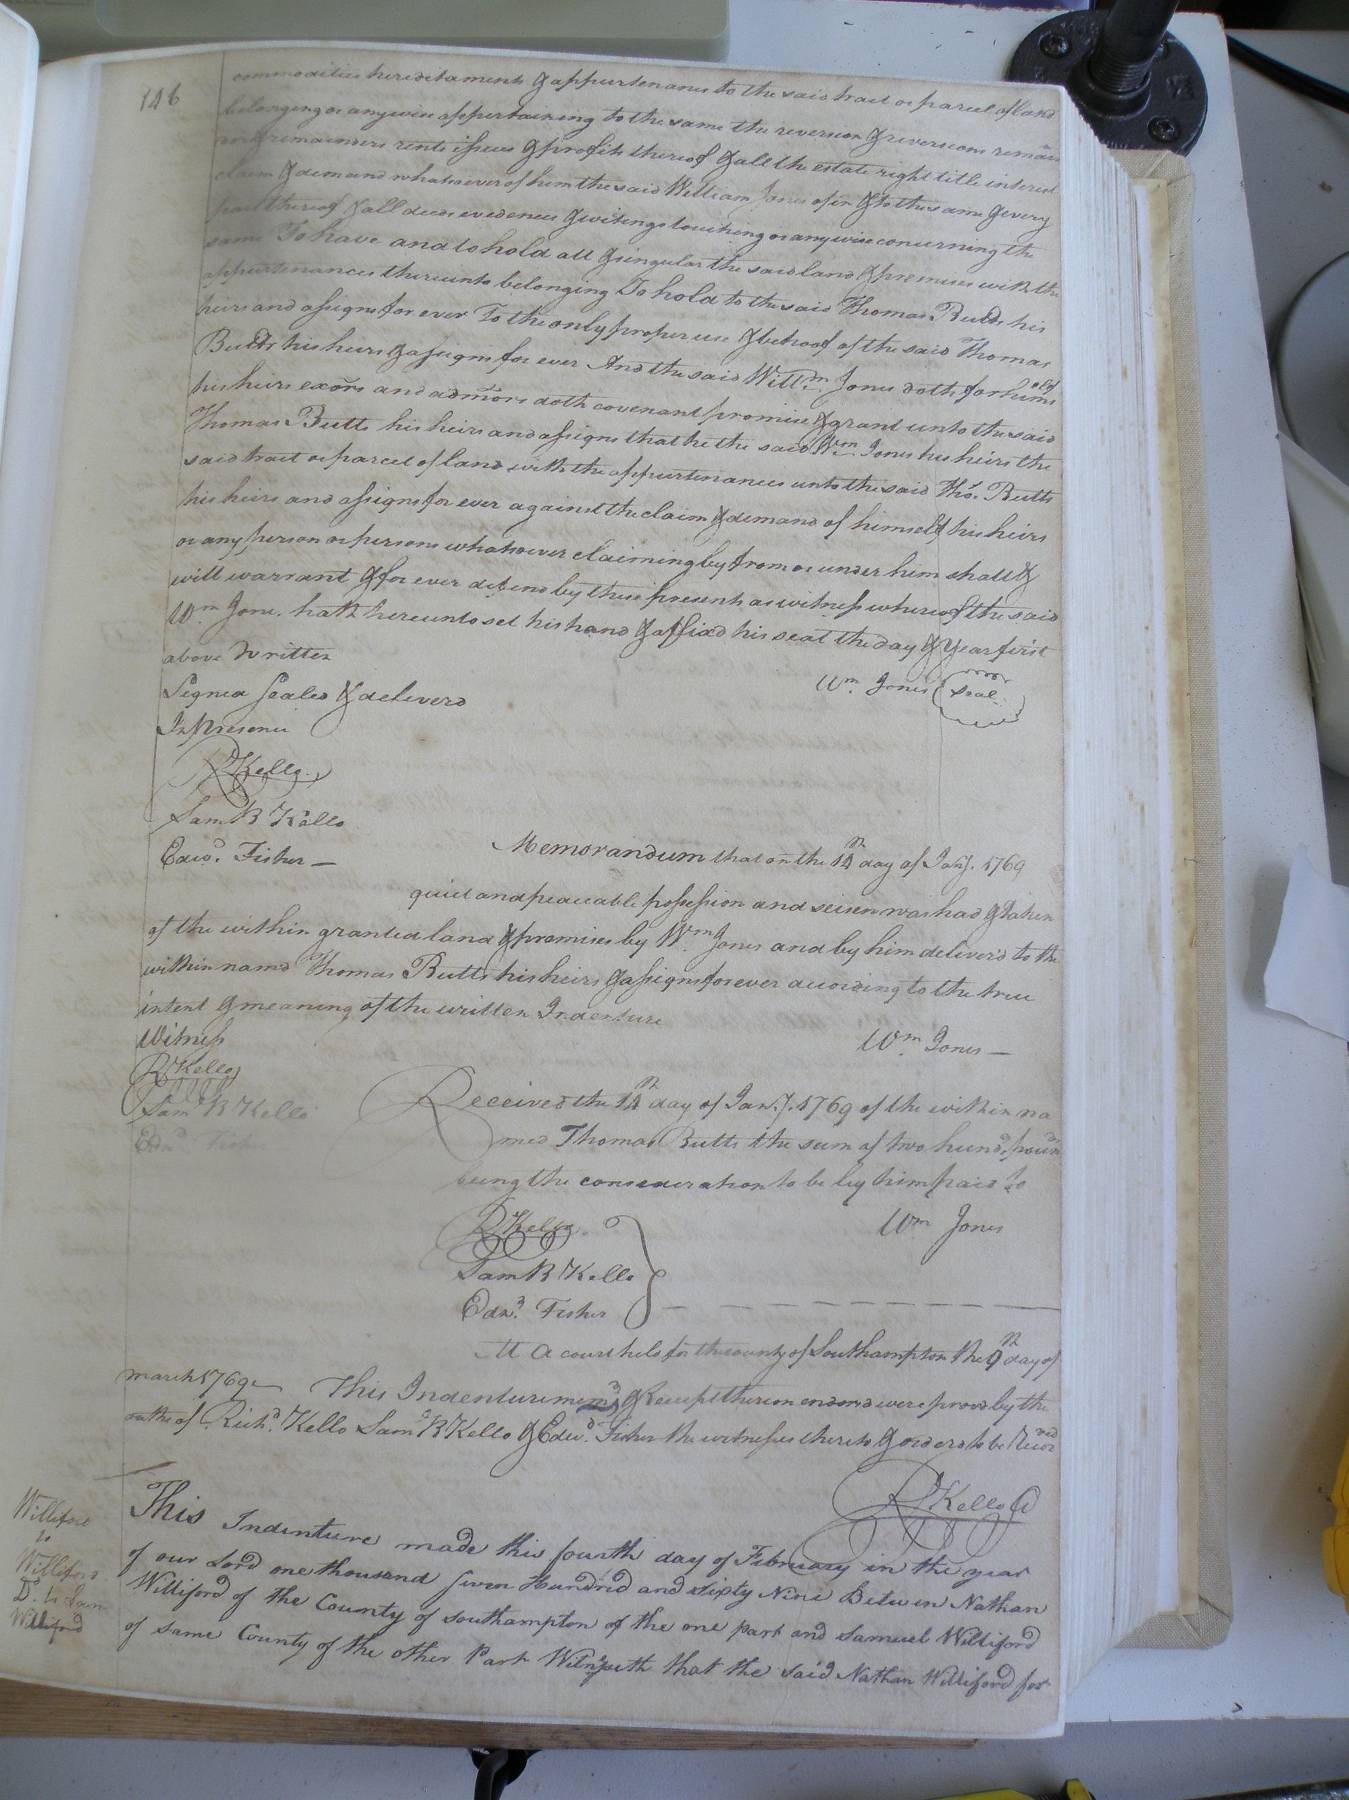 146
commodities hereditaments & appurtenances to the said tract or parcel of land
belonging or anywise appertaining to the same the reversion & reversions remain
and remainders rents issues & profits thereof & all the estate right title interest
claim & demand whatsoever of him the said William Jones of in & to the same & every
part thereof & all deeds evedences & writings touching or anywise concerning the
same To have and to hold all & singular the said land & premises with the
appurtenances thereunto belonging To hold to the said Thomas Butts his
heirs and assigns for ever To the only proper use & behoof of the said Thomas
Butts his heirs & assigns for ever And the said Willm. Jones doth for himself
his heirs exors and admors doth covenant promise & grant unto the said
Thomas Butts his heirs and assigns that he the said Wm. Jones his heirs the
said tract or parcel of land with the appurtenances unto the said Thos. Butts
his heirs and assigns for ever against the claim & demand of himself his heirs
or any person or persons whatsoever claiming by from or under him shall &
will warrant & for ever defend by these presents as witness whereof the said
Wm. Jone. hath hereunto set his hand & affixd his seal the day & year first
above written
Signed Sealed & deliverd
Wm. Jones Seal
In Presence
R Kello
Sam B Kello
Edwd. Fisher —
Memorandum that on the 14th day of Jany. 1769
quiet and peaceable possession and seisen was had & taken
of the within granted land & premises by Wm Jones and by him deliverd to the
within namd Thomas Butts his heirs & assigns for ever according to the true
intent & meaning of the written Indenture
Witness
Wm. Jones —
R Kello
Saml B Kello
Edwd Fisher
Received the 14th day of Jany. 1769 of the within na
med Thomas Butts the sum of two hundd. pounds
being the consideration to be by him paid to
Wm Jones
R Kello
Sam B Kello
Edwd. Fisher
At A court held for the county of Southampton the 9th day of
march 1769 This Indenture memd. & Receipt thereon endorsd were provd by the
oaths of Richd. Kello Saml B Kello & Edwd. Fisher the witnesses thereto & orderd to be Recorded
R Kello
Williford
to
Williford
This Indenture made this fourth day of February in the year
of our Lord one thousand seven Hundrid and Sixty Nine Between Nathan
Williford of the County of Southampton of the one part and Samuel Williford
Williford
of same County of the other Part Witnesseth that the said Nathan Williford for